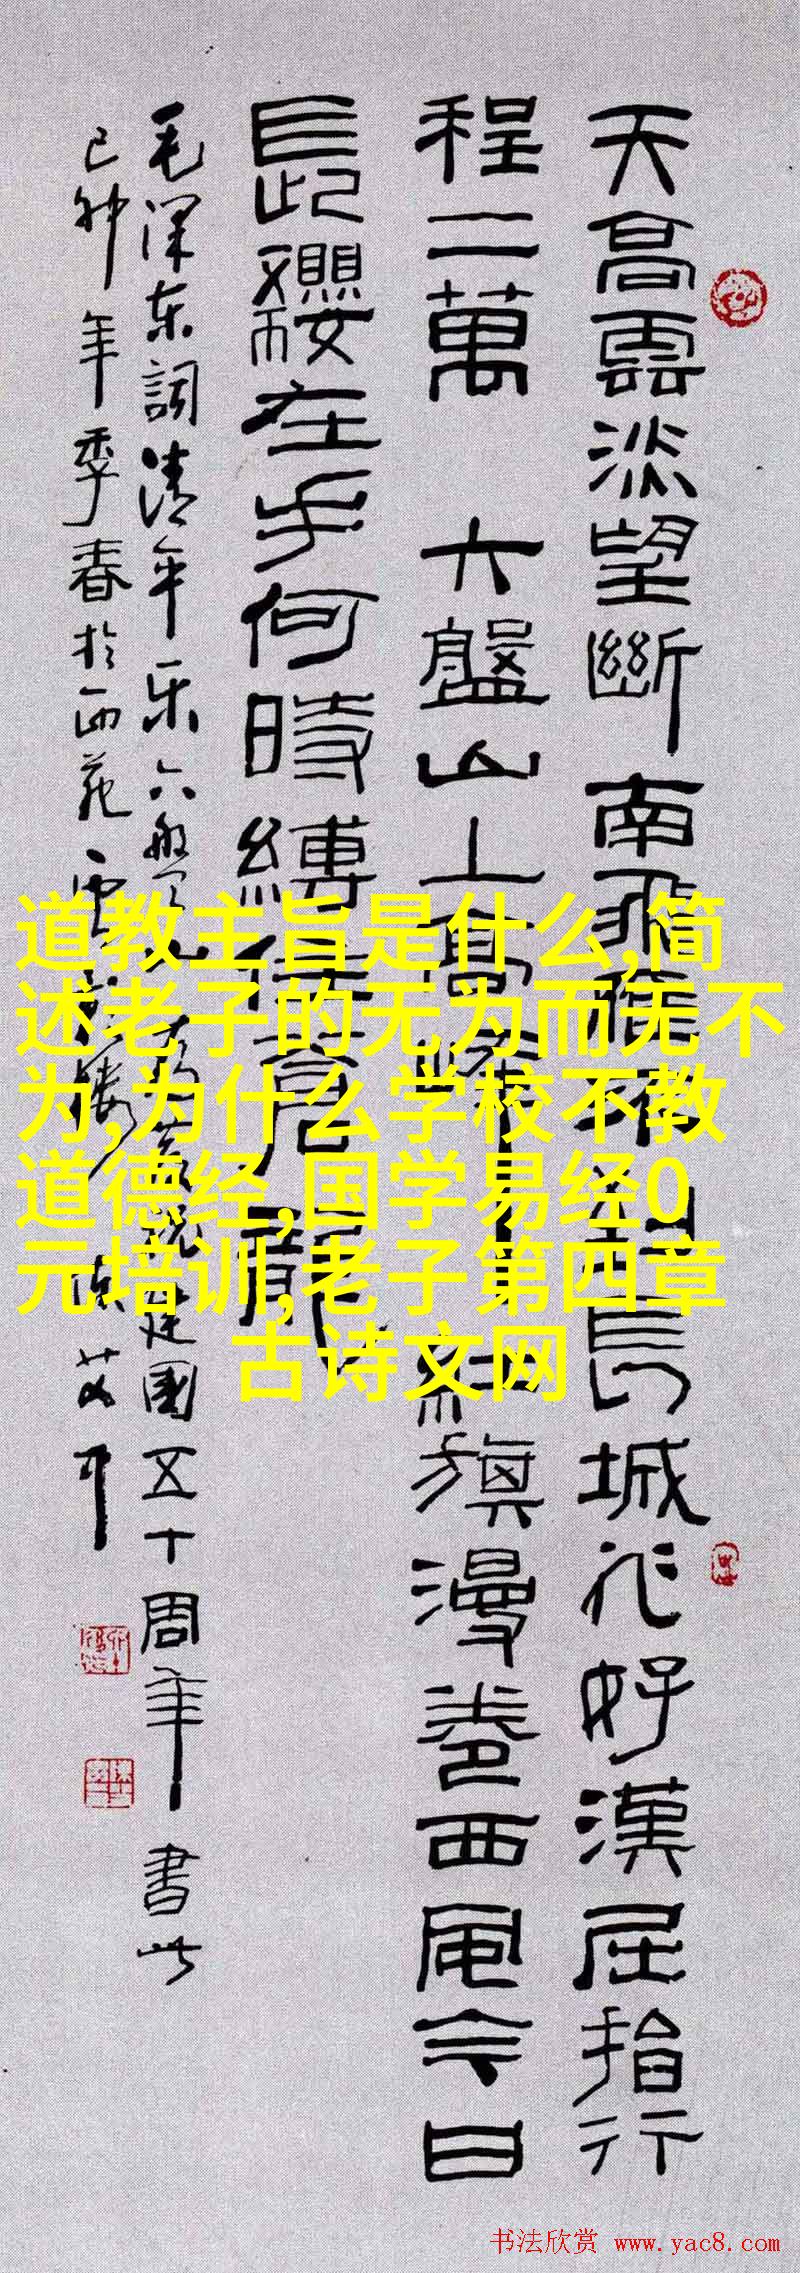 天高雲淡望斷南飛雁不到長城非好漢屈指行
程二萬 六盤山上高峰紅旗漫卷西風今日
長纓在手何時縛住蒼龍
毛澤东詞清平乐六盤山建國五十周年書此
己卯年季春於西苑
道教主旨是什么,简
述老子的无为而无不
为,为什么学校不教
道德经,国学易经0
元培训,老子第四章
古诗文网
书法欣赏 www.yac8.com